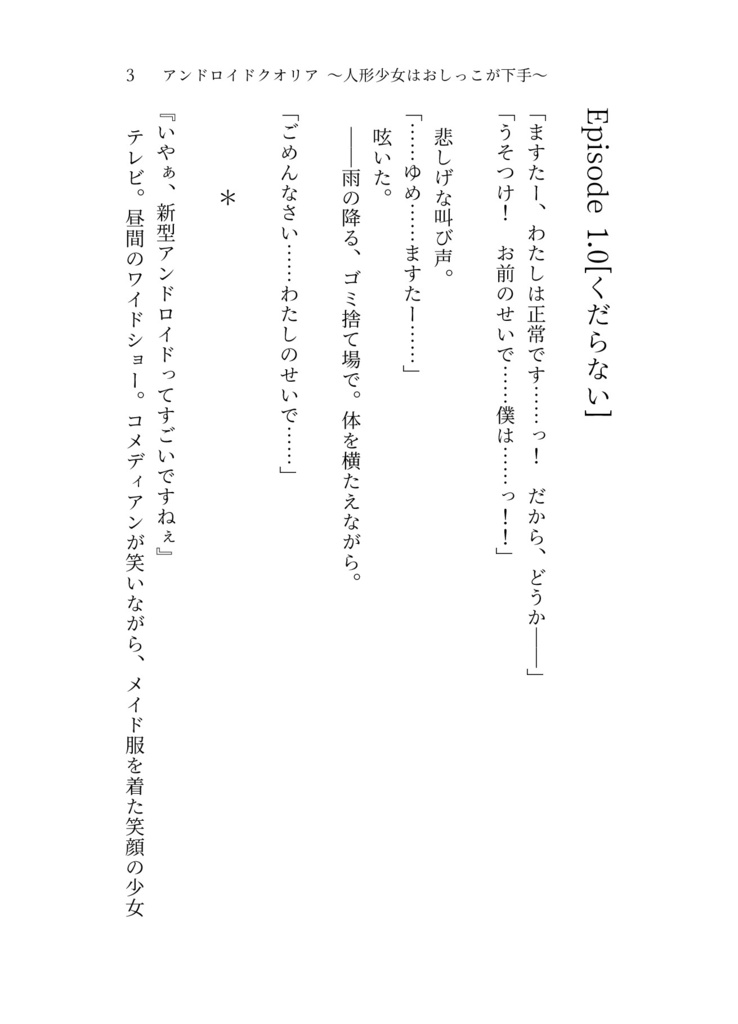 3 アンドロイドクオリア ～人形少女はおしっこが下手～
Episode 1.0[くだらない]
「ますたー、わたしは正常です……っ！　だから、どうか――」
「うそつけ！　お前のせいで……僕は……っ！！」
悲しげな叫び声。
「……ゆめ……ますたー……」
呟いた。
――雨の降る、ゴミ捨て場で。体を横たえながら。
「ごめんなさい……わたしのせいで……」
＊
『いやぁ、新型アンドロイドってすごいですねぇ』
テレビ。昼間のワイドショー。コメディアンが笑いながら、メイド服を着た笑顔の少女